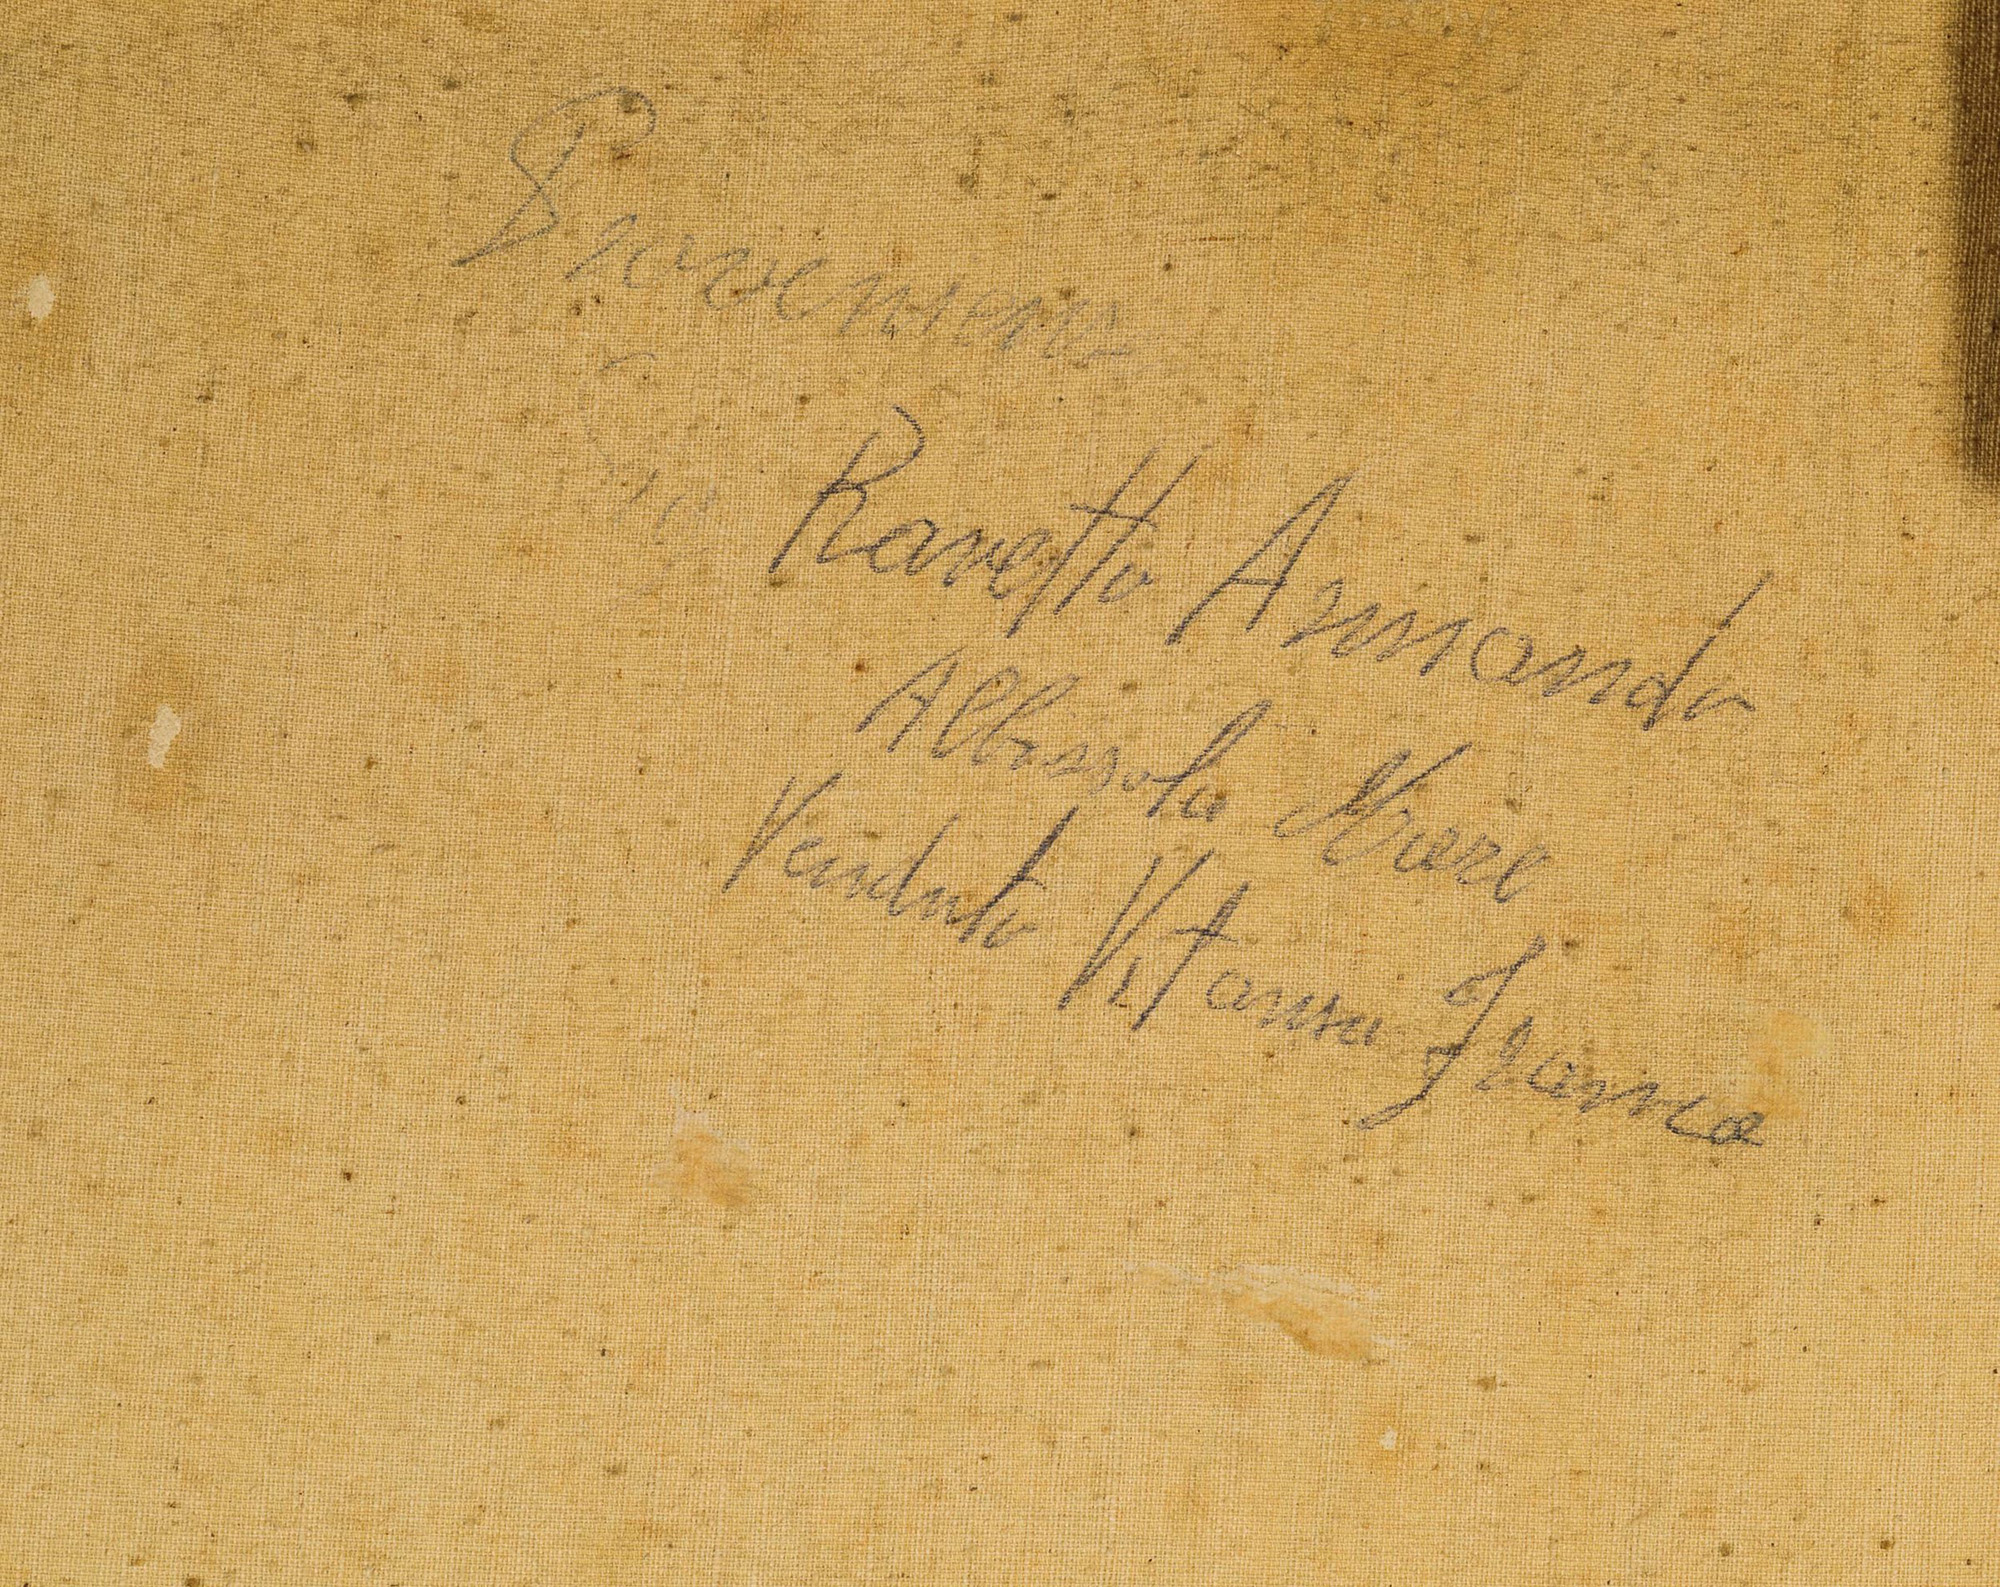 Provenienz
Ravetto Armando
Albissola Mare
Venduto Vitanza Franco